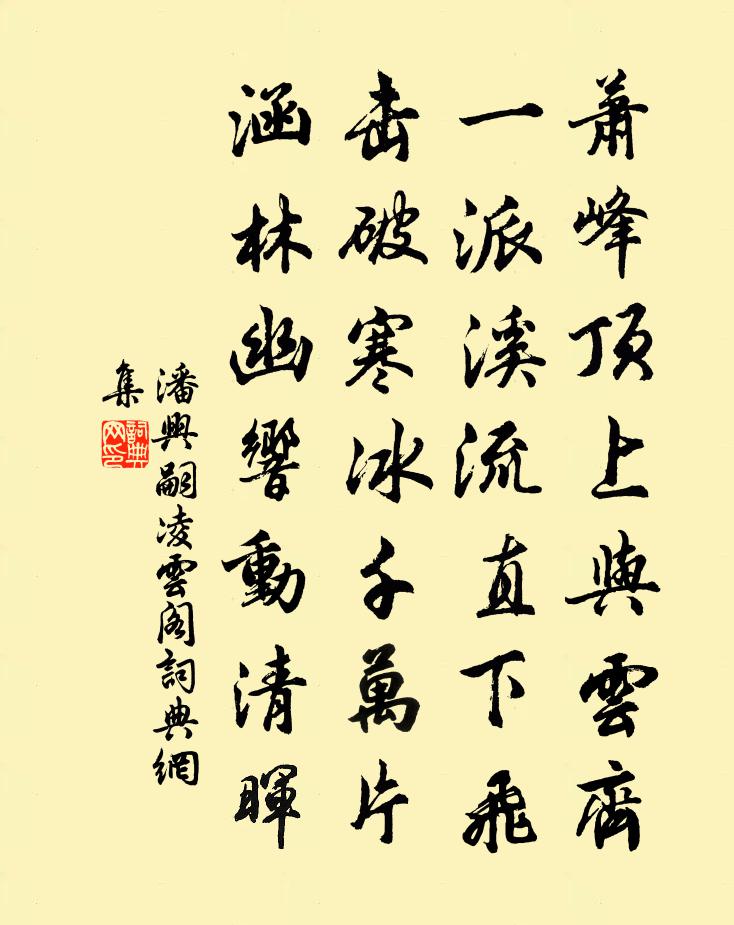 蕭峰頂上與雲齊
一派溪流直下飛
擊破寒冰千萬片
涵林幽響動清暉
潘興嗣凌雲阁詞典網
集
詞典
网印